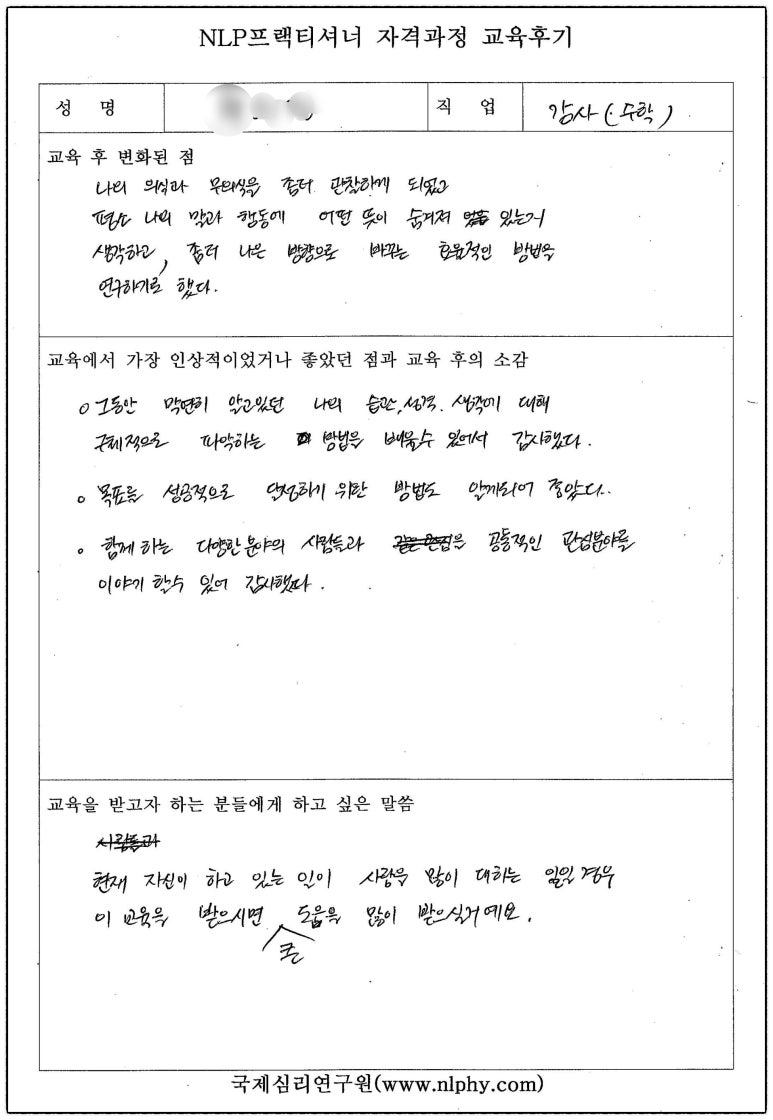 NLP프랙티셔너 자격과정 교육후기
성 명
직 업 강사(수학)
교육 후 변화된 점
나의 의식과 무의식을 좀더 관찰하게 되었고
평소 나의 말과 행동에 어떤 뜻이 숨겨져 있는지
생각하고, 좀더 나은 방향으로 바꾸는 효율적인 방법을
연구하기로 했다.
교육에서 가장 인상적이었거나 좋았던 점과 교육 후의 소감
o 그동안 막연히 알고있던 나의 습관, 성격, 생각에 대해
구체적으로 파악하는 방법을 배울수 있어서 감사했다.
o 목표를 성공적으로 달성하기 위한 방법도 알게되어 좋았다.
o 함께 하는 다양한 분야의 사람들과 공통적인 관심분야를
이야기 할수 있어 감사했다.
교육을 받고자 하는 분들에게 하고 싶은 말씀
사람들과
현재 자신이 하고 있는 일이 사람을 많이 대하는 일일 경우
이 교육을 받으시면 큰 도움을 많이 받으실거예요.
국제심리연구원(www.nlphy.com)